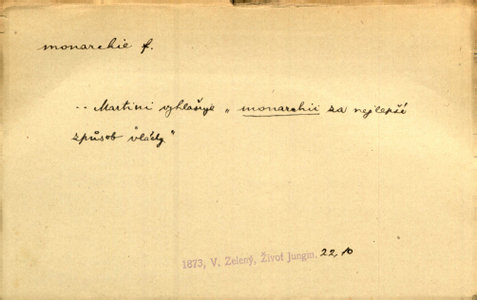 monarchie f.
.. Martini vyhlašuje „monarchii za nejlepší
způsob vlády"
1873, V. Zelený, Život Jungm. 22